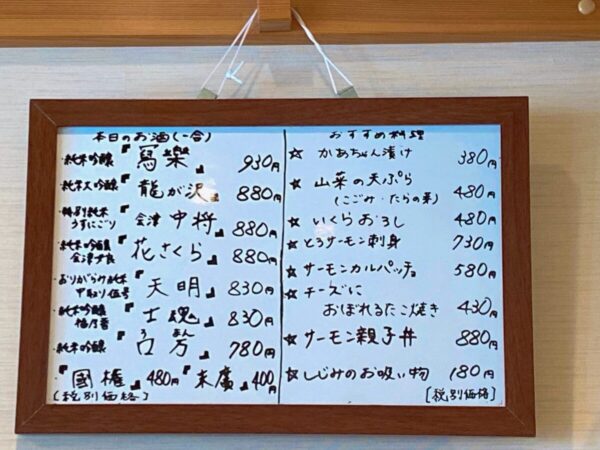 本日のお酒(一合)
純米吟醸『寫樂』 930円
純米大吟醸『龍が沢』 880円
特別純米
うすにごり『会津中将』 880円
純米吟醸『花さくら』 880円
おりがらみ純米
中取り伍号『天明』 830円
純米吟醸『士魂』 830円
ろ まん
純米吟醸『口万』 780円
『國権』480円『末廣』400円
(税別価格)
おすすめ料理
☆ かあちゃん漬け 380円
☆ 山菜の天ぷら
(こごみ・たらの芽) 480円
☆ いくらおろし 480円
☆ とろサーモン刺身 730円
☆ サーモンカルパッチョ 580円
☆ チーズに
おぼれるたこ焼き 430円
☆ サーモン親子丼 880円
☆ しじみのお吸い物 180円
[税別価格]